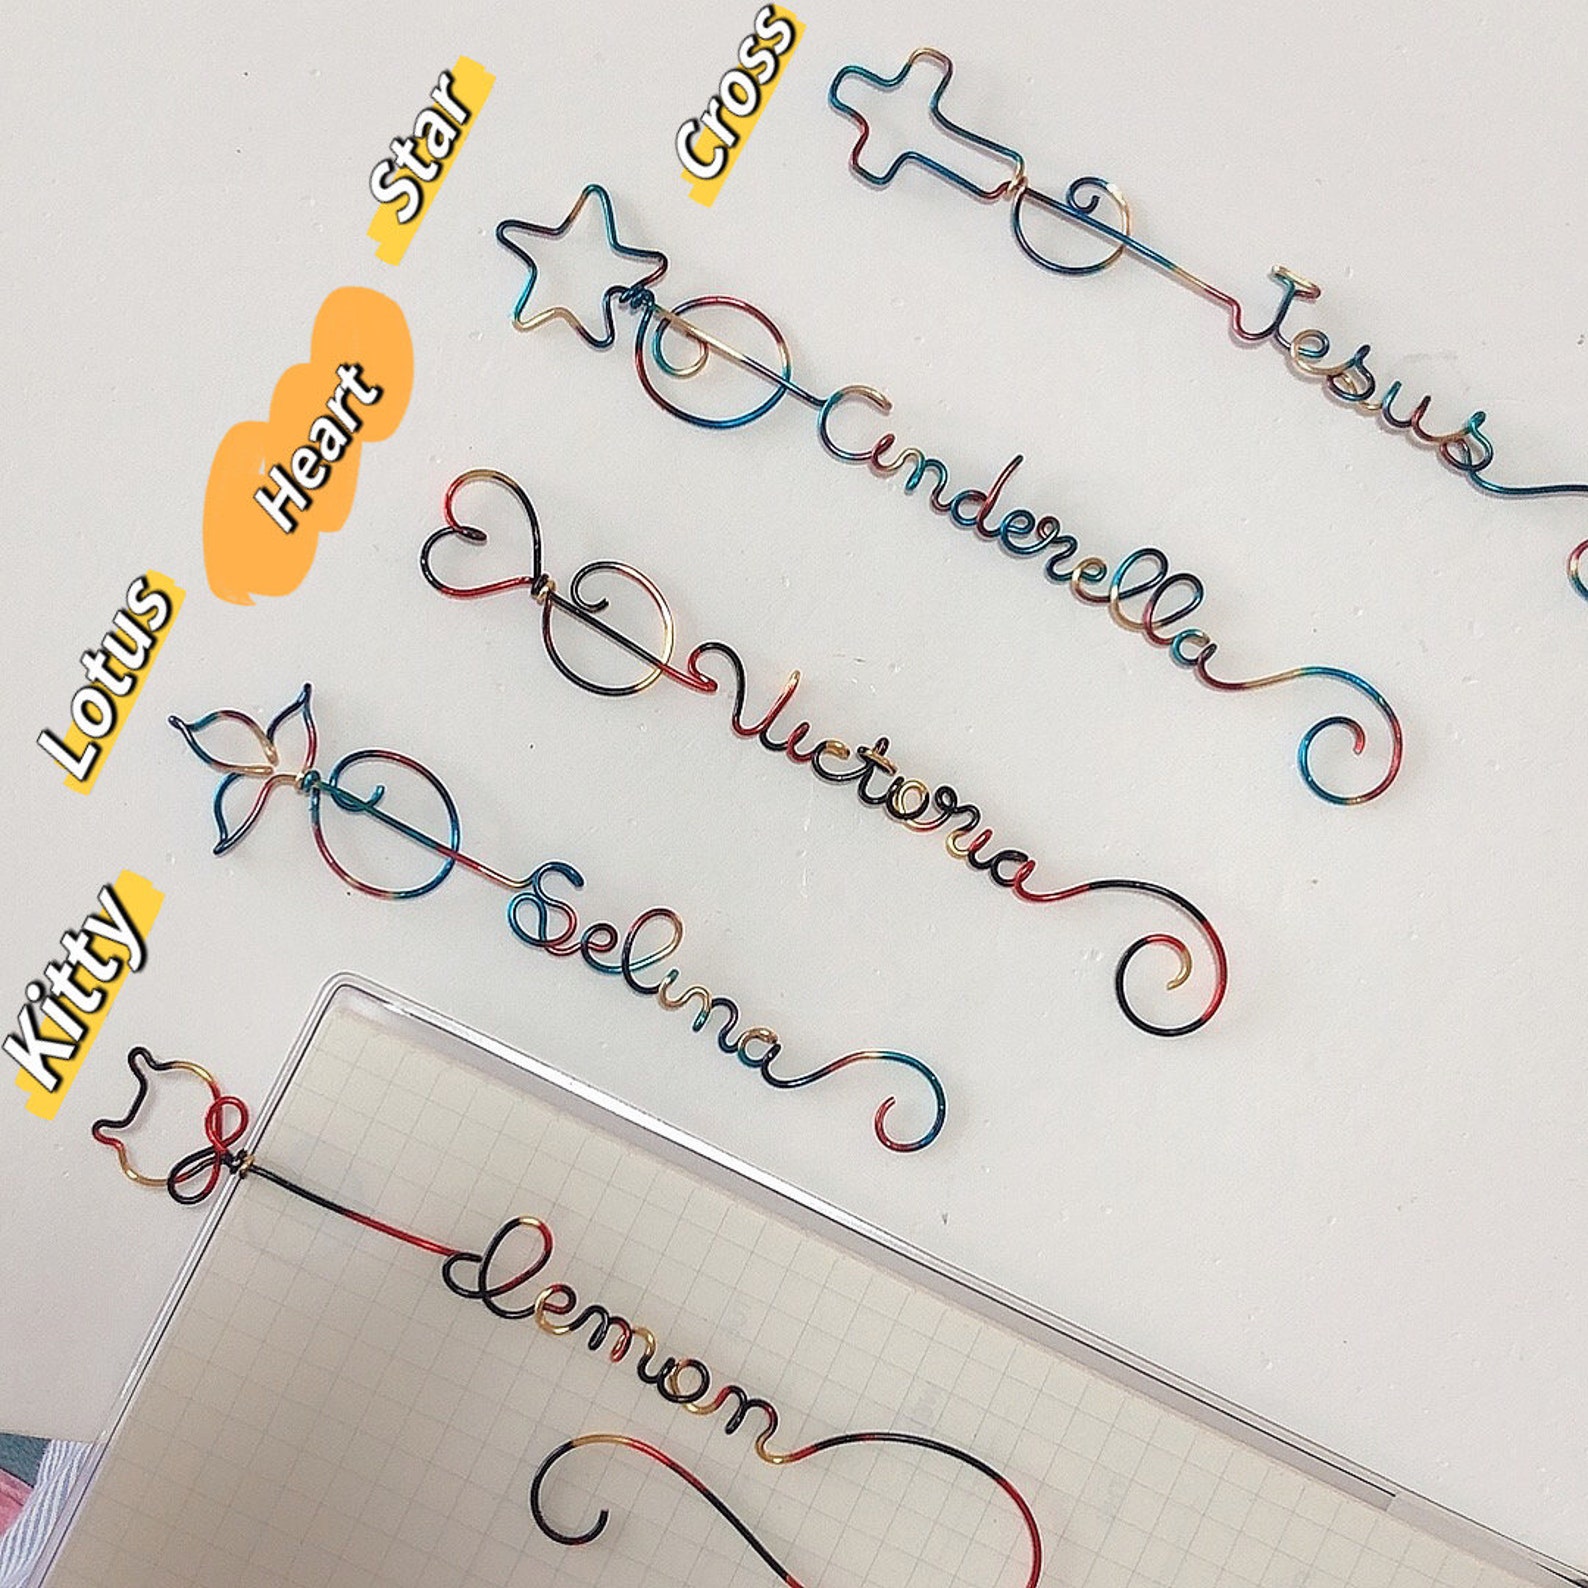 Cross
Star
Heart
Lotus
Kitty
Jesus
Cinderella
Victoria
Selina
lemon